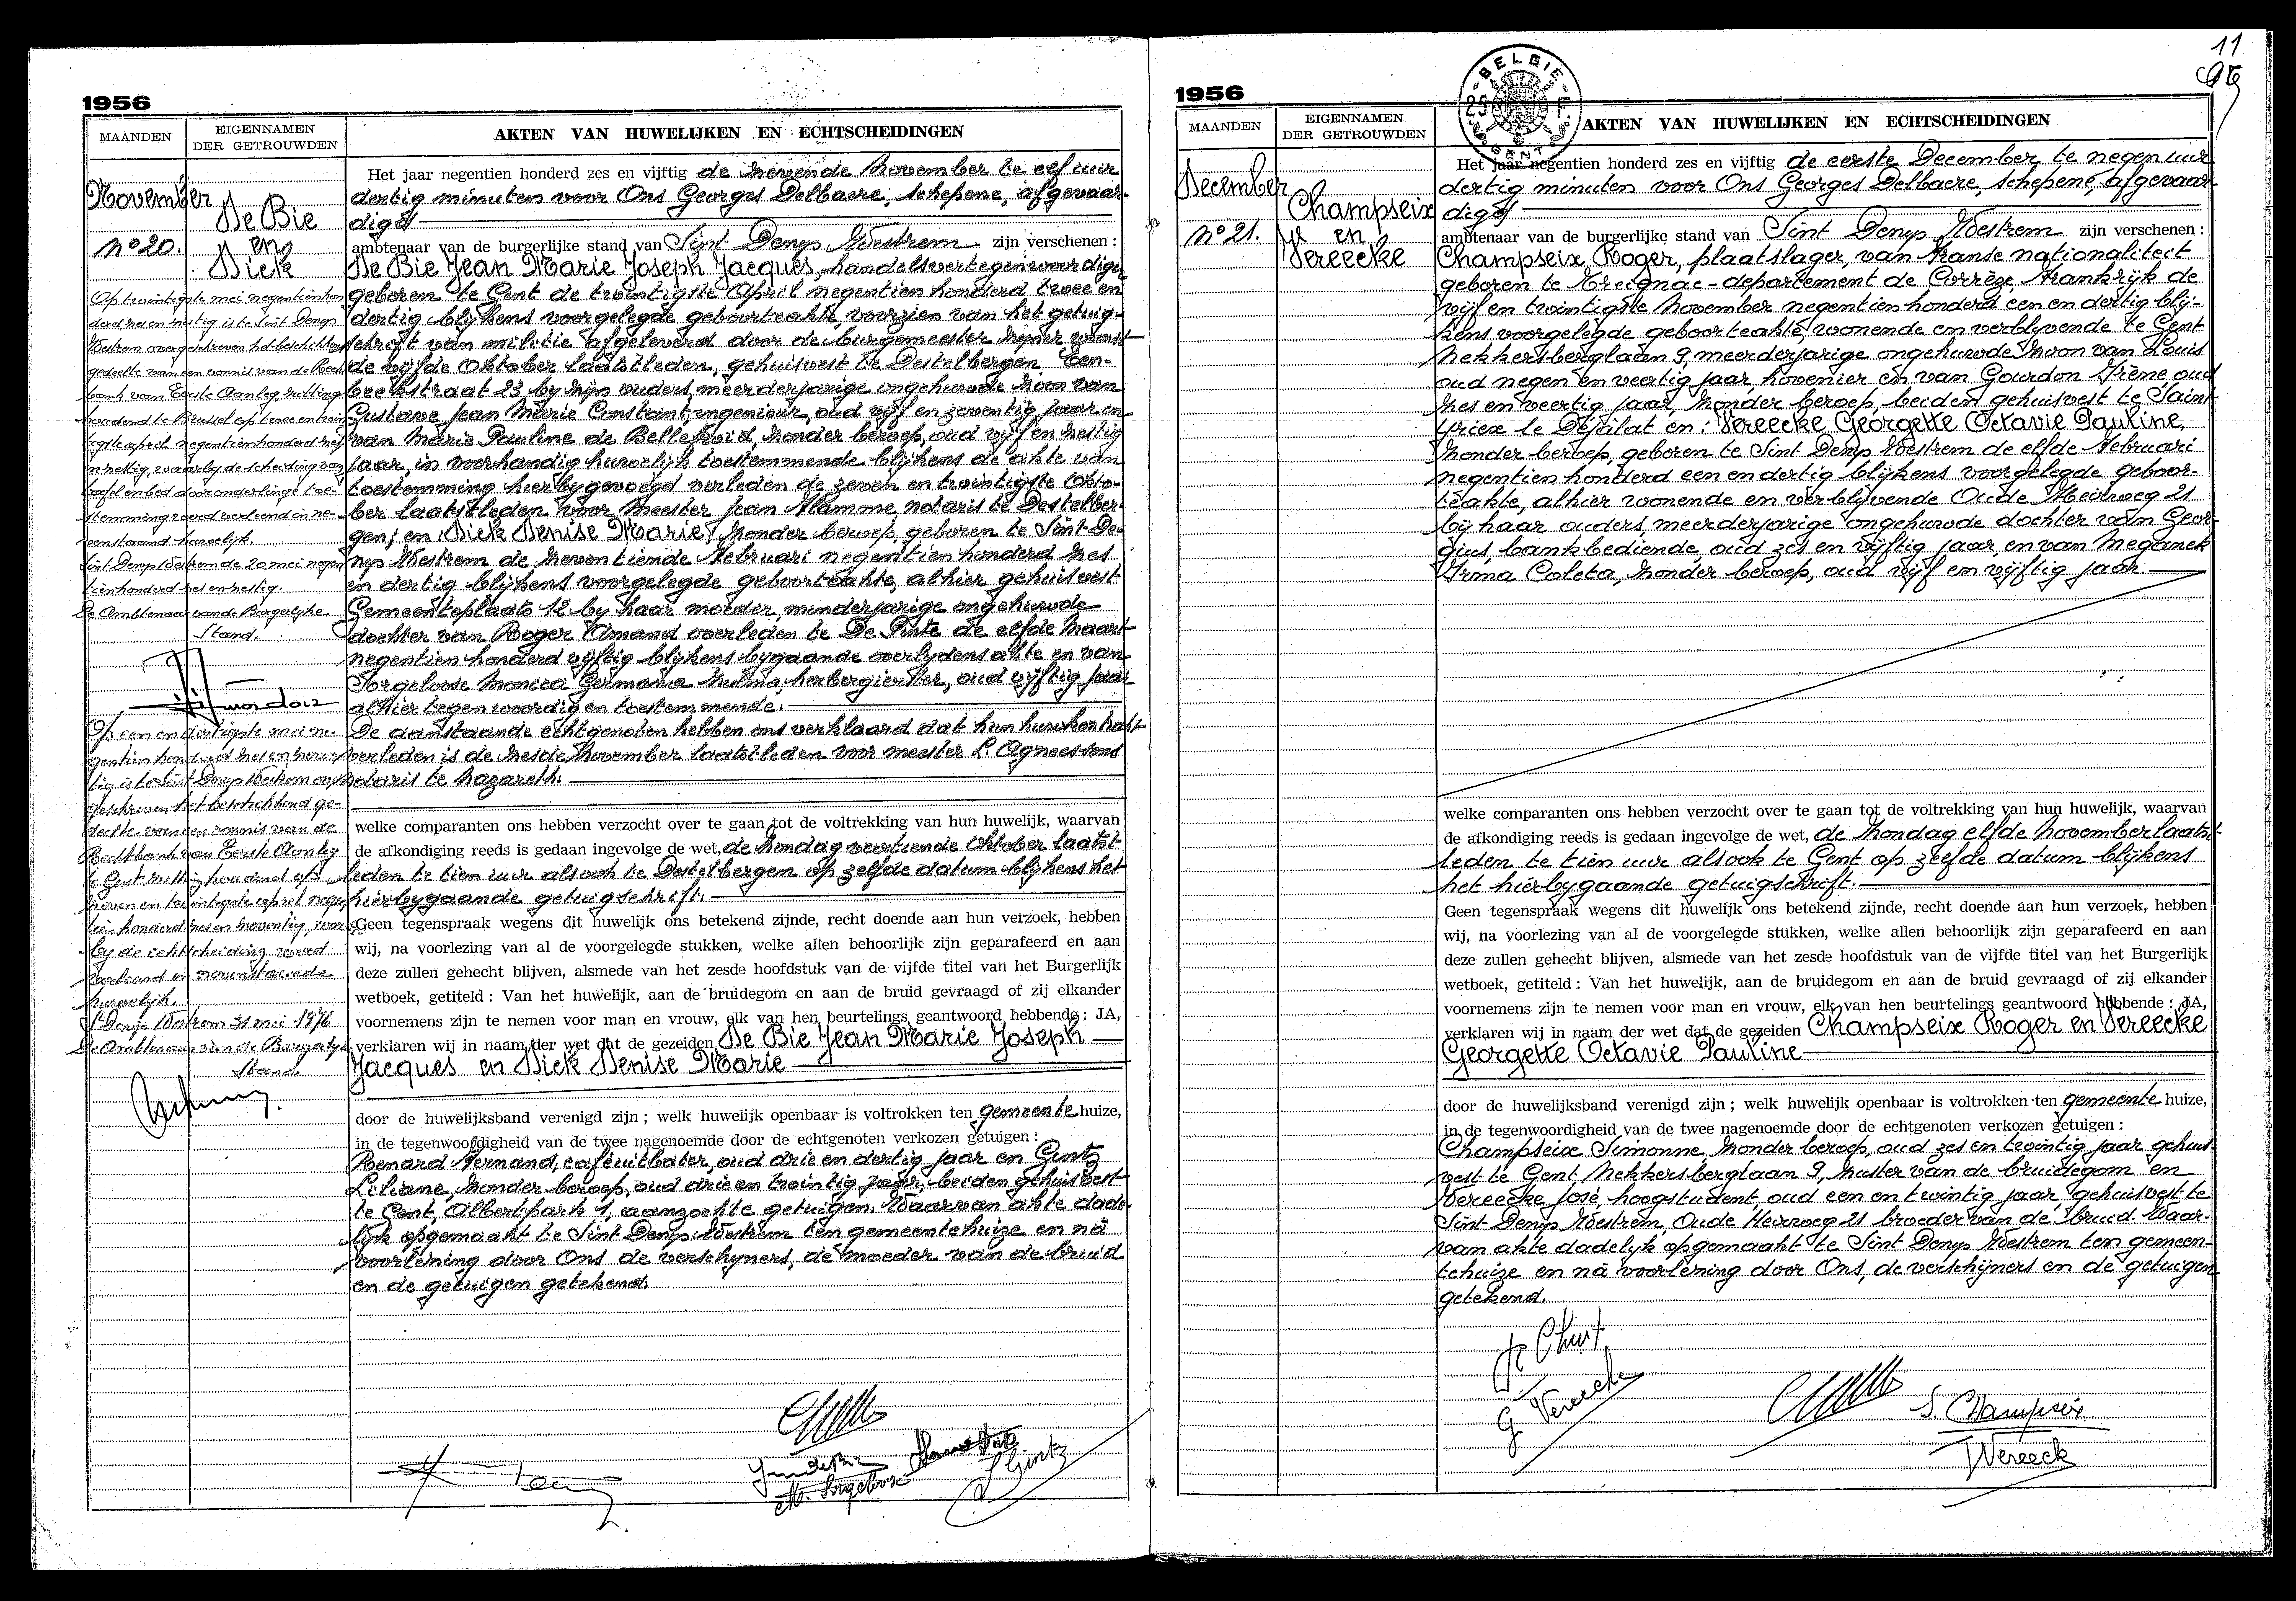 1956
MAANDEN
EIGENNAMEN
DER GETROUWDEN
AKTEN VAN HUWELIJKEN EN ECHTSCHEIDINGEN
November
De Bie
en
Dick
nº 20.
Op twintigste mei negentienhon
derd zes en zestig is te Sint Denys
Westrem overgeschreven het beschikkend
gedeelte van een vonnis van de Recht
bank van Eerste Aanleg, zitting
houdend te Brussel op twee en twin
tigste april negentienhonderd vijf
en zestig, waarbij de scheiding van
tafel en bed door onderlinge toe-
stemming werd verleend in ne-
venstaand huwelijk.
Sint Denys Westrem de 20 mei negen
tienhonderd zes en zestig.
De Ambtenaar van de Burgerlyke
Stand.
Op een en dertigste mei ne-
gentien honderd zes en zeven
tig is te Sint Denys Westrem over
geschreven het beschikkend ge-
deelte van een vonnis van de
Rechtbank van Eerste Aanleg
te Gent zitting houdend op
zeven en twintigste april negen
tien honderd zes en zeventig, waar
by de echtscheiding werd
verleend in nevenstaande
huwelijk.
St Denijs Westrem 31 mei 1976
De Ambtenaar van de Burgerlyke
Stand.
Het jaar negentien honderd zes en vijftig de zevende November te elf uur
dertig minuten voor Ons Georges Delbaere, schepene, afgevaar-
digd
ambtenaar van de burgerlijke stand van Sint Denys Westrem zijn verschenen :
De Bie Jean Marie Joseph Jacques, handelsvertegenwoordiger
geboren te Gent de twintigste April negentien honderd twee en
dertig blijkens voorgelegde geboorteakte, voorzien van het getuig-
schrift van militie afgeleverd door de burgemeester zijner woonst
de vijfde Oktober laatstleden, gehuisvest te Destelbergen, Een-
beekstraat 23 by zijn ouders, meerderjarige ongehuwde zoon van
Gustave Jean Marie Constant, ingenieur, oud vijf en zeventig jaar en
van Marie Pauline de Bellefroid, zonder beroep, oud vijf en zestig
jaar, in voorhandig huwelijk toestemmende blijkens de akte van
toestemming hierbygevoegd verleden de zeven en twintigste Okto-
ber laatstleden voor Meester Jean Flamme, notaris te Destelber-
gen; en : Dick Denise Marie, zonder beroep, geboren te Sint-De-
nys Westrem de zeventiende Februari negentien honderd zes
en dertig blijkens voorgelegde geboorteakte, alhier gehuisvest
Gemeenteplaats 12 by haar moeder, minderjarige ongehuwde
dochter van Roger Amand overleden te De Pinte de elfde Maart
negentien honderd vijftig blijkens bygaande overlydensakte en van
Sorgeloose Monica Germania Zulma, herbergierster, oud vijftig jaar
alhier tegenwoordig en toestemmende.
De aanstaande echtgenoten hebben ons verklaard dat hun huwkontrakt
verleden is de zesde November laatstleden voor meester L. Agneessens
notaris te Nazareth.
welke comparanten ons hebben verzocht over te gaan tot de voltrekking van hun huwelijk, waarvan
de afkondiging reeds is gedaan ingevolge de wet, de Zondag veertiende Oktober laatst-
leden te tien uur alsook te Destelbergen op zelfde datum blijkens het
hierbygaande getuigschrift.
Geen tegenspraak wegens dit huwelijk ons betekend zijnde, recht doende aan hun verzoek, hebben
wij, na voorlezing van al de voorgelegde stukken, welke allen behoorlijk zijn geparafeerd en aan
deze zullen gehecht blijven, alsmede van het zesde hoofdstuk van de vijfde titel van het Burgerlijk
wetboek, getiteld : Van het huwelijk, aan de bruidegom en aan de bruid gevraagd of zij elkander
voornemens zijn te nemen voor man en vrouw, elk van hen beurtelings geantwoord hebbende : JA,
verklaren wij in naam der wet dat de gezeiden De Bie Jean Marie Joseph
Jacques en Dick Denise Marie
door de huwelijksband verenigd zijn ; welk huwelijk openbaar is voltrokken ten gemeente huize,
in de tegenwoordigheid van de twee nagenoemde door de echtgenoten verkozen getuigen :
Renard Fernand, caféuitbater, oud drie en dertig jaar en Gintz
Liliane, zonder beroep, oud drie en twintig jaar, beiden gehuisvest
te Gent, Albertpark 1, aanzochte getuigen. Waarvan akte dade-
lijk opgemaakt te Sint Denys Westrem ten gemeentehuize en nà
voorlezing door Ons de verschyners, de moeder van de bruid
en de getuigen getekend.
M. Sorgeloose
L Gintz
11
1956
BELGIE
25 F
GENT
MAANDEN
EIGENNAMEN
DER GETROUWDEN
AKTEN VAN HUWELIJKEN EN ECHTSCHEIDINGEN
December
Champseix
en
Vereecke
nº 21.
Het jaar negentien honderd zes en vijftig de eerste December te negen uur
dertig minuten voor Ons Georges Delbaere, schepene, afgevaar-
digd
ambtenaar van de burgerlijke stand van Sint Denys Westrem zijn verschenen :
Champseix Roger, plaatslager, van Franse nationaliteit
geboren te Treignac - departement de Corrèze, Frankrijk de
vijf en twintigste November negentien honderd een en dertig blij-
kens voorgelegde geboorteakte, wonende en verblyvende te Gent
Nekkersberglaan 9, meerderjarige ongehuwde zoon van Louis
oud negen en veertig jaar hovenier en van Gourdon Irène, oud
zes en veertig jaar, zonder beroep, beiden gehuisvest te Saint
Yriex le Déjalat en : Vereecke Georgette Octavie Pauline,
zonder beroep, geboren te Sint Denys Westrem de elfde Februari
negentien honderd een en dertig blijkens voorgelegde geboor-
teakte, alhier wonende en verblijvende Oude Heirweg 21
bij haar ouders, meerderjarige ongehuwde dochter van Geor-
gius, bankbediende, oud zes en vijftig jaar, en van Meganck
Irma Coleta, zonder beroep, oud vijf en vijftig jaar.
welke comparanten ons hebben verzocht over te gaan tot de voltrekking van hun huwelijk, waarvan
de afkondiging reeds is gedaan ingevolge de wet, de Zondag elfde November laatst-
leden te tien uur alsook te Gent op zelfde datum blijkens
het hierbygaande getuigschrift.
Geen tegenspraak wegens dit huwelijk ons betekend zijnde, recht doende aan hun verzoek, hebben
wij, na voorlezing van al de voorgelegde stukken, welke allen behoorlijk zijn geparafeerd en aan
deze zullen gehecht blijven, alsmede van het zesde hoofdstuk van de vijfde titel van het Burgerlijk
wetboek, getiteld : Van het huwelijk, aan de bruidegom en aan de bruid gevraagd of zij elkander
voornemens zijn te nemen voor man en vrouw, elk van hen beurtelings geantwoord hebbende : JA,
verklaren wij in naam der wet dat de gezeiden Champseix Roger en Vereecke
Georgette Octavie Pauline
door de huwelijksband verenigd zijn ; welk huwelijk openbaar is voltrokken ten gemeente huize,
in de tegenwoordigheid van de twee nagenoemde door de echtgenoten verkozen getuigen :
Champseix Simonne zonder beroep, oud zes en twintig jaar gehuis-
vest te Gent, Nekkersberglaan 9, zuster van de bruidegom en
Vereecke José, hoogstudent, oud een en twintig jaar, gehuisvest te
Sint-Denys Westrem, Oude Heirweg 21 broeder van de bruid. Waar-
van akte dadelyk opgemaakt te Sint Denys Westrem ten gemeen-
tehuize en nà voorlezing door Ons, de verschijners en de getuigen
getekend.
G Vereecke
S. Champseix
JVereeck